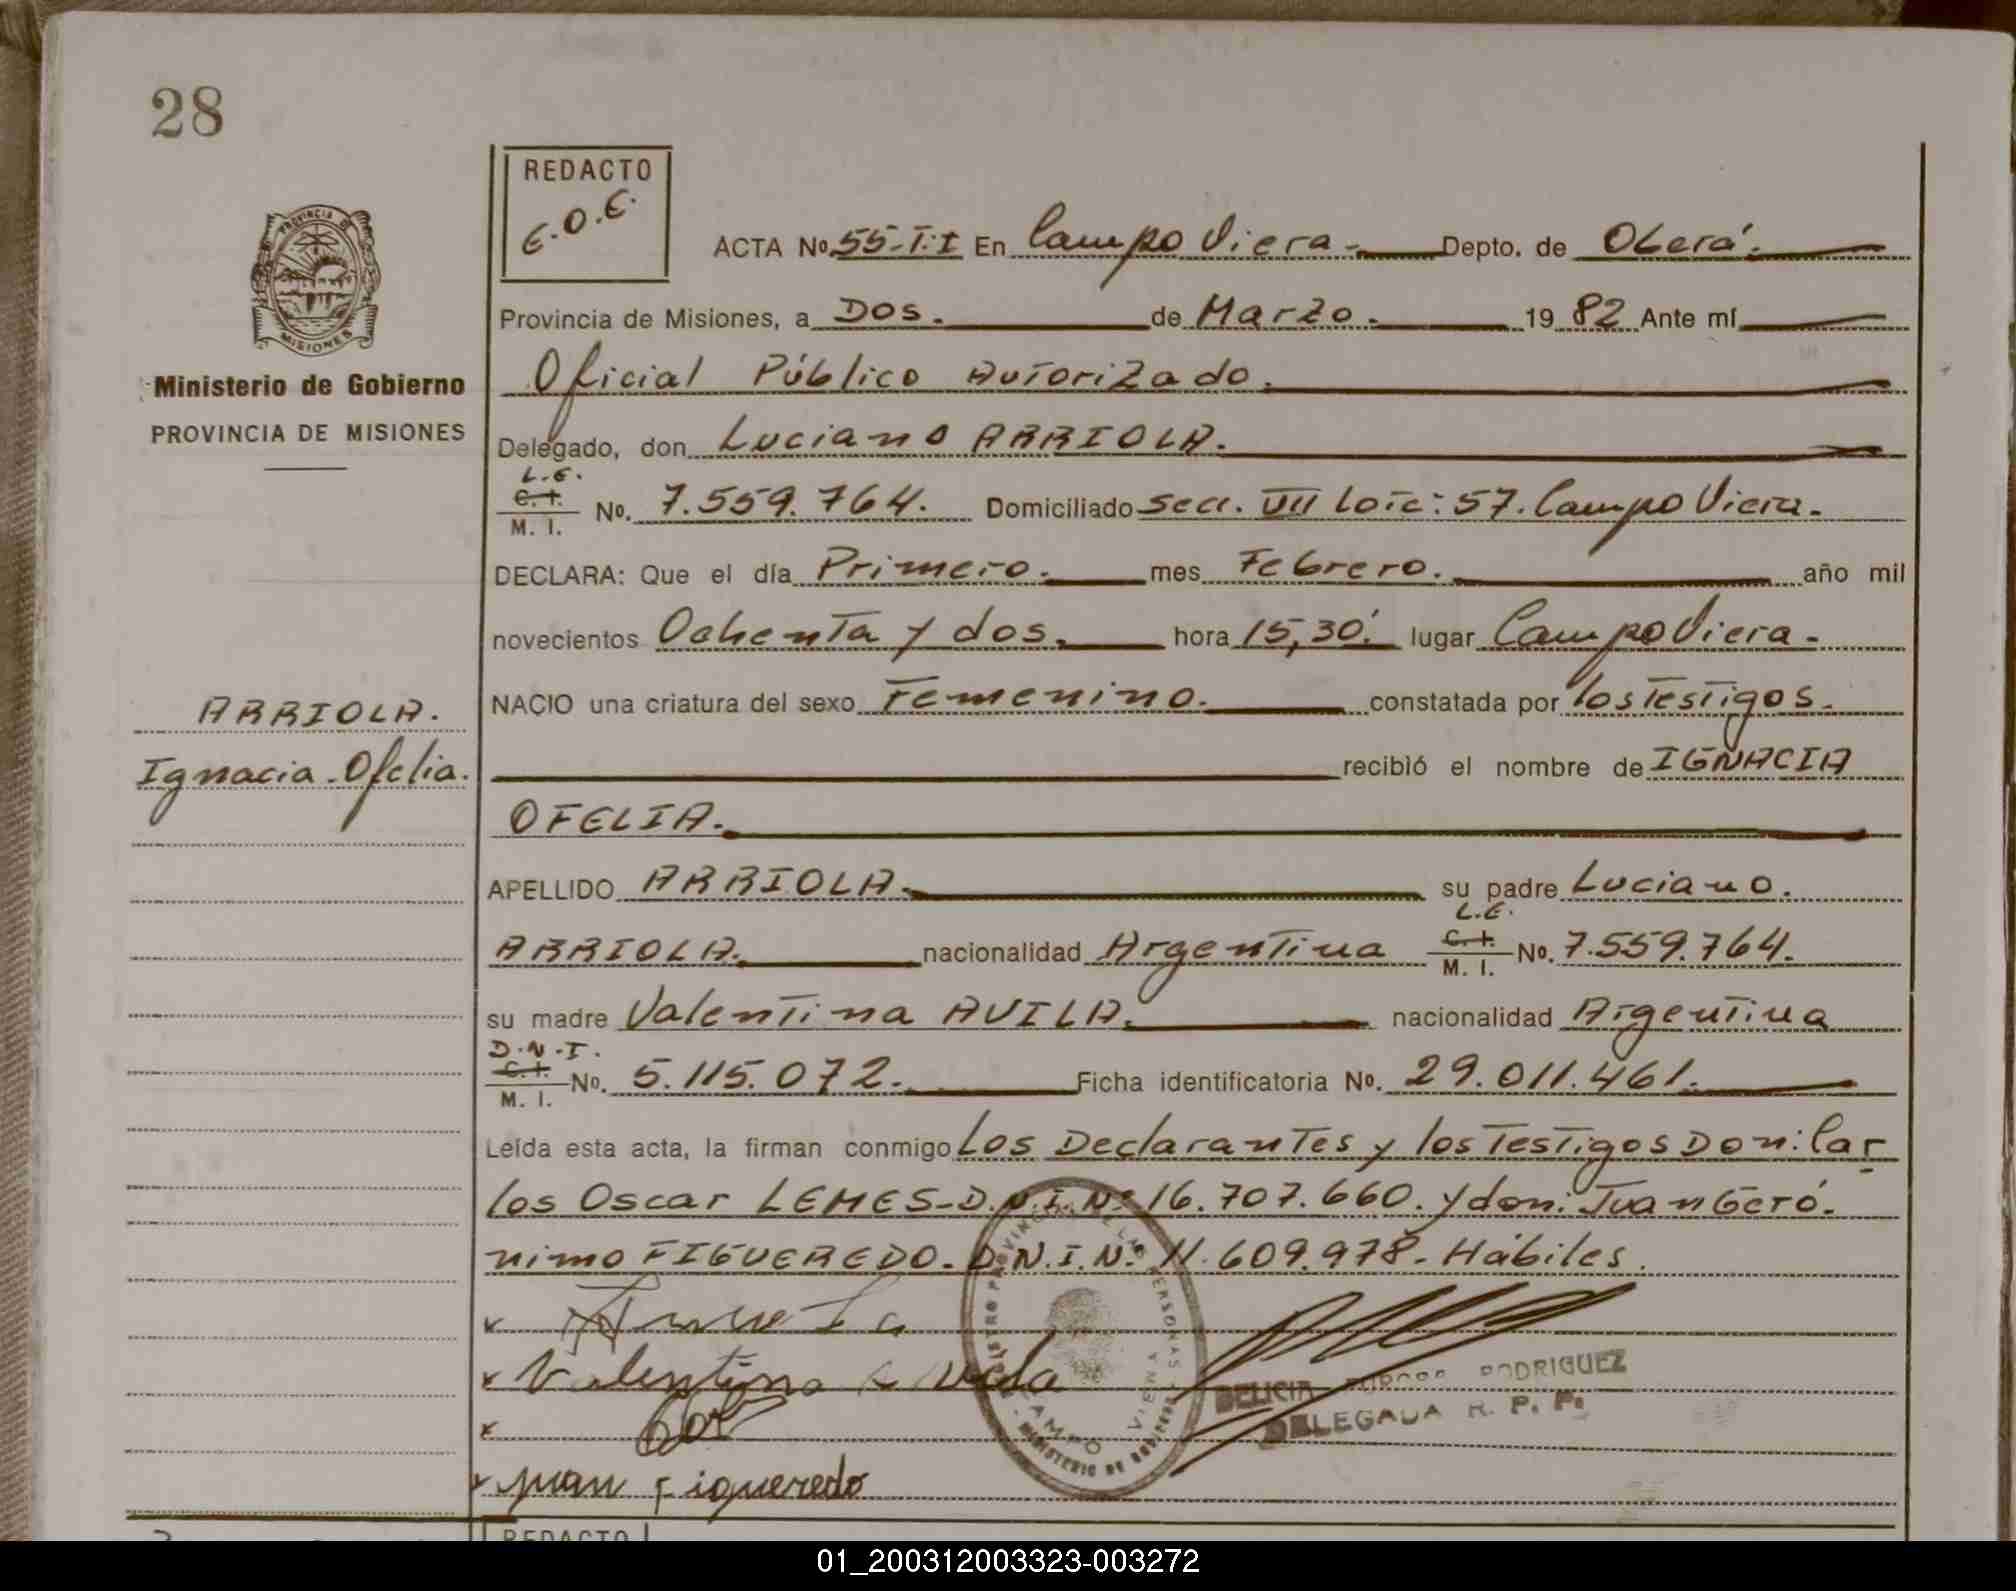 28
REDACTO
E.O.E.
ACTA No. 55-T.I En Campo Viera.- Depto. de Oberá.-
Provincia de Misiones, a Dos. de Marzo. 1982 Ante mí
Oficial Público Autorizado.
Delegado, don Luciano ARRIOLA.
L.E.
C.I.
M. I. No. 7.559.764. Domiciliado Secc. VII Lote: 57. Campo Viera.
DECLARA: Que el día Primero. mes Febrero. año mil
novecientos Ochenta y dos. hora 15,30'. lugar Campo Viera.
NACIO una criatura del sexo Femenino. constatada por los Testigos.
recibió el nombre de IGNACIA
OFELIA.
APELLIDO ARRIOLA. su padre Luciano.
L.E.
ARRIOLA. nacionalidad Argentina C.I. M. I. No. 7.559.764.
su madre Valentina AVILA. nacionalidad Argentina
D.N.I.
C.I.
M. I. No. 5.115.072. Ficha identificatoria No. 29.011.461.
Leída esta acta, la firman conmigo Los Declarantes y los Testigos Don: Car
los Oscar LEMES-D.N.I.Nº 16.707.660. y don: Juan Geró.
nimo FIGUEREDO. D.N.I.Nº 11.609.978- Hábiles.
Valentina Avila
Juan Figueredo
RODRIGUEZ
DELEGADA R. P. P.
REGISTRO PROVINCIAL DE LAS PERSONAS
CAMPO VIERA
MINISTERIO DE GOBIERNO
PROVINCIA DE
MISIONES
Ministerio de Gobierno
PROVINCIA DE MISIONES
ARRIOLA.
Ignacia Ofelia.
REDACTO
01_200312003323-003272